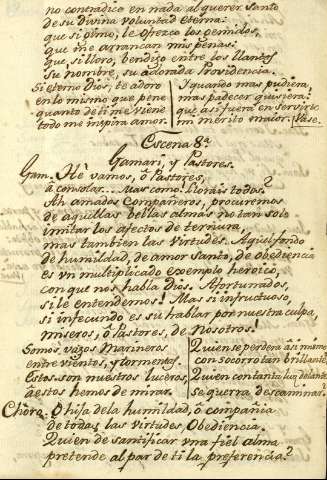 no contradico en nada al querer santo
de su divina voluntad eterna:
que si gimo, le ofrezco los gemidos,
que me arrancan mis penas:
que, si lloro, bendigo entre los llantos
su nombre, su adorada Providencia.
Si eterno Dios, te adoro
en lo mismo que pene
quanto de ti me viene
todo me inspira amor.
Y quando mas pudiera
mas padecer quisiera:
que assi fuera en servirte
mi merito maior. Vase.
Escena 8.ª
Gamari, y Pastores.
Gam. Hè vamos, ò Pastores,
à consolar... Mas como? Llorais todos?
Ah amados Compañeros, procuremos
de aquellas bellas almas no tan solo
imitar los afectos de ternura,
mas tambien las virtudes. Aquel fondo
de humildad, de amor santo, de obediencia
es vn multiplicado exemplo heroico,
con que nos habla Dios. Afortunados,
si le entendemos! Mas si infructuoso,
si infecundo es su hablar por nuestra culpa,
miseros, ò Pastores, de nosotros!
Somos vazos Marineros
entre vientos, y tormentas.
Estos son nuestros luceros,
à estos hemos de mirar.
Quien se perderà assi mismo
con socorro tan brillante,
Quien con tanta luz delante
se querra descaminar.
Choro. O hija de la humildad, ò compañia
de todas las virtudes, Obediencia.
Quien de santificar vna fiel alma
pretende al par de ti la preferencia?